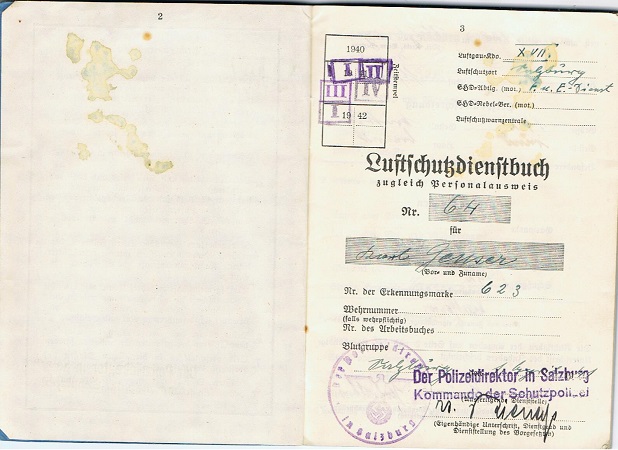 2
3
1940
I II
III IV
I 19 42
Zeitstempel
Luftgau-Kdo. XVII.
Luftschutzort Salzburg
SHD-Abtlg. (mot.) F. u. E.-Dienst
SHD-Nebel-Ber. (mot.)
Luftschutzwarnzentrale
Luftschutzdienstbuch
zugleich Personalausweis
Nr. 64
für
(Vor- und Zuname)
Nr. der Erkennungsmarke 623
Wehrnummer
(falls wehrpflichtig)
Nr. des Arbeitsbuches
Blutgruppe
Salzburg
Der Polizeidirektor in Salzburg
Kommando der Schutzpolizei
(Ausfertigende Dienststelle)
(Eigenhändige Unterschrift, Dienstgrad und
Dienststellung des Vorgesetzten)
Der Polizeidirektor
in Salzburg